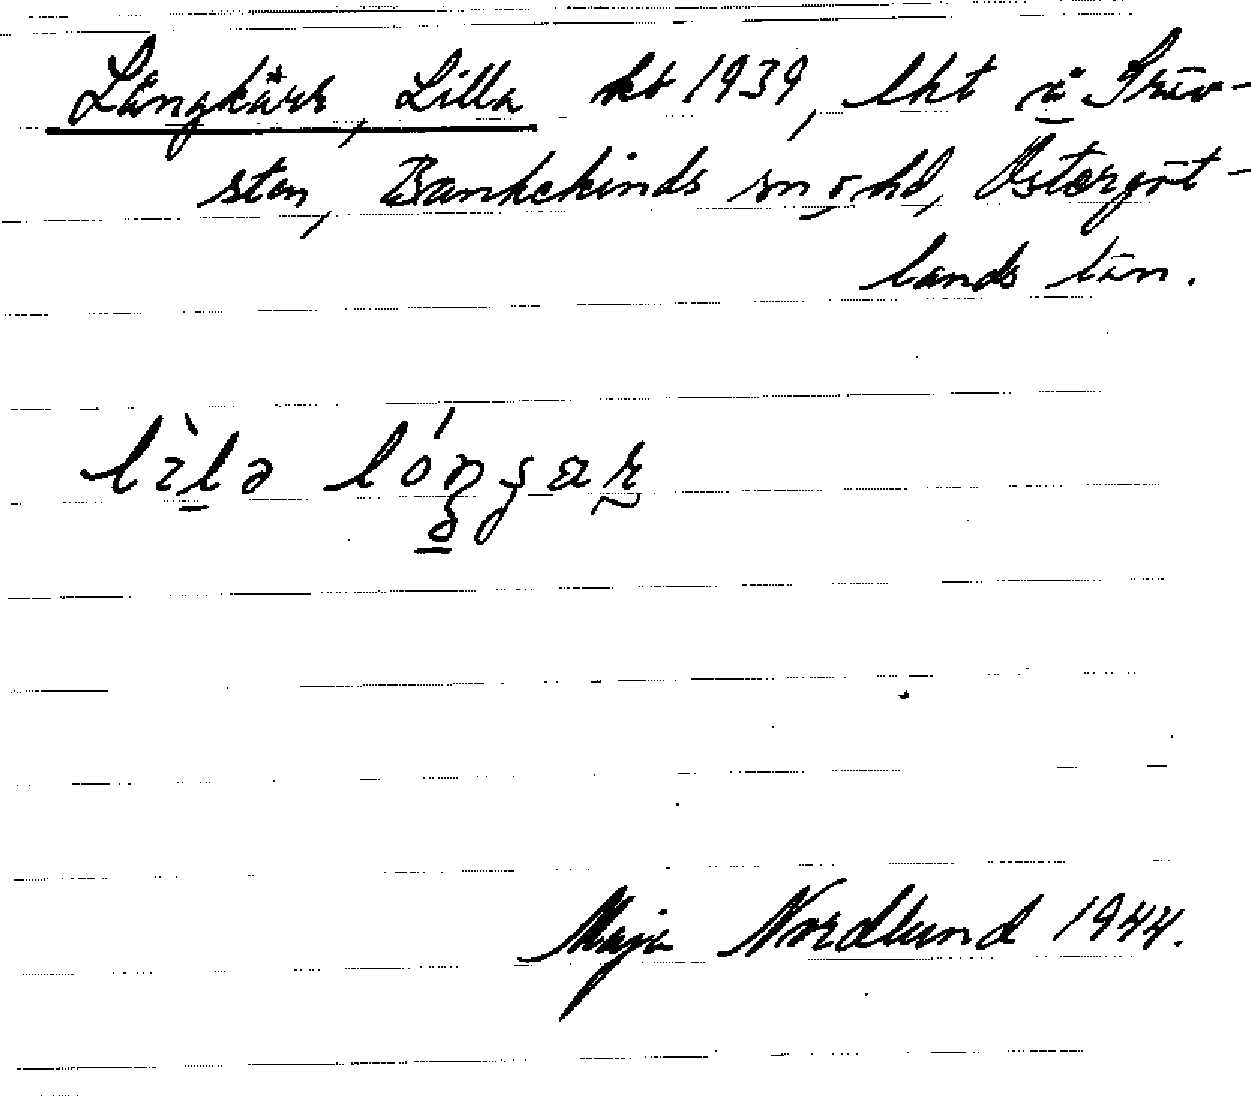 Långkärr, Lilla kb 1939, lht å Gräv-
sten, Bankekinds sn o. hd, Östergöt-
lands län.
Maja Nordlund 1944.